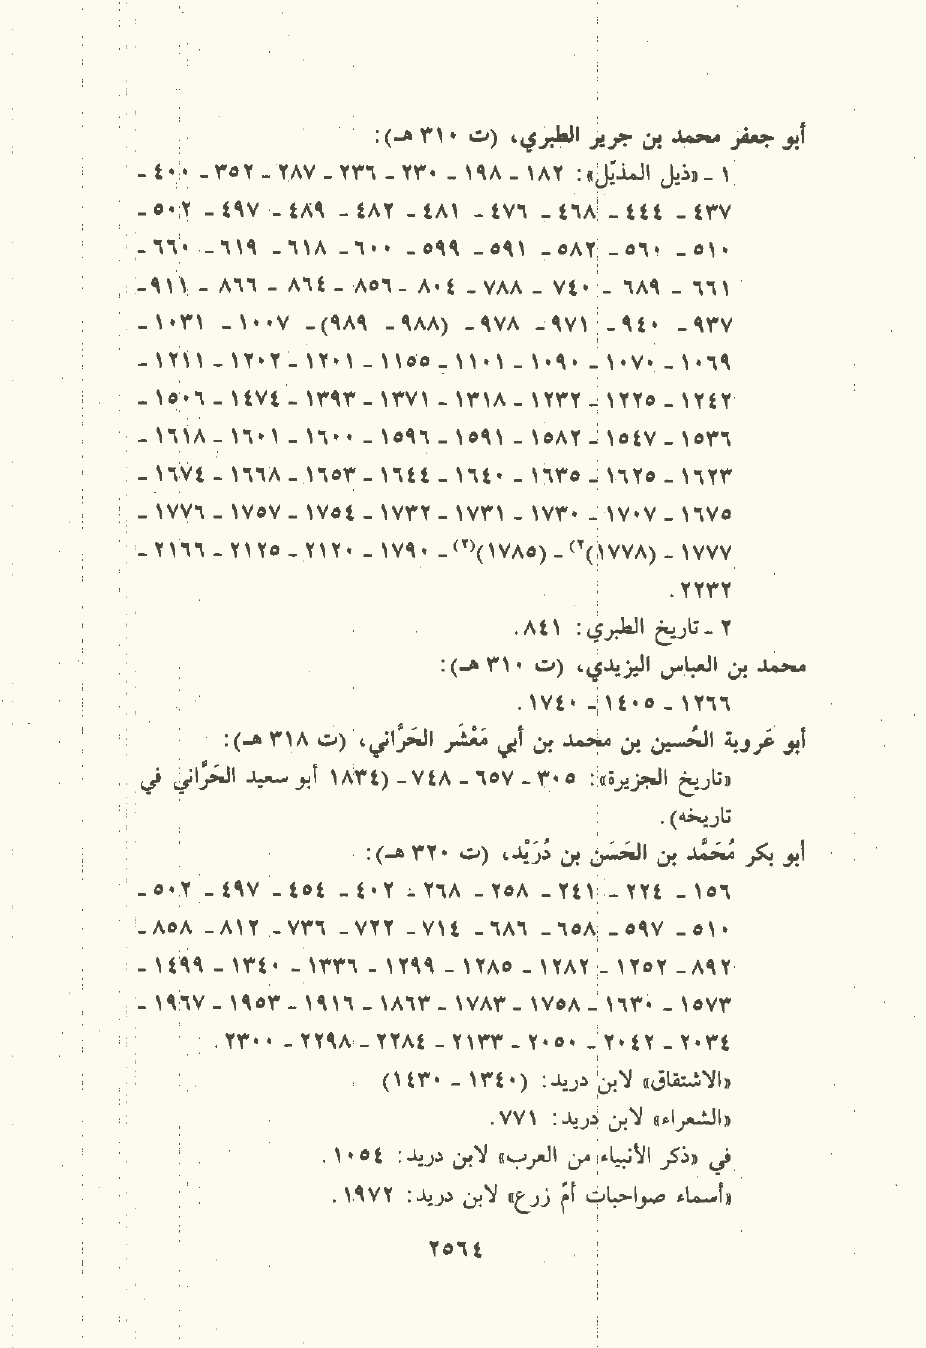 أبو جعفر محمد بن جرير الطبري، (ت ٣١٠ هـ):
١ ـ «ذيل المذيّل»: ١٨٢ ـ ١٩٨ ـ ٢٣٠ ـ ٢٣٦ ـ ٢٨٧ ـ ٣٥٢ ـ ٤٠٠ ـ
٤٣٧ ـ ٤٤٤ ـ ٤٦٨ ـ ٤٧٦ ـ ٤٨١ ـ ٤٨٢ ـ ٤٨٩ ـ ٤٩٧ ـ ٥٠٢ ـ
٥١٠ ـ ٥٦٠ ـ ٥٨٢ ـ ٥٩١ ـ ٥٩٩ ـ ٦٠٠ ـ ٦١٨ ـ ٦١٩ ـ ٦٦٠ ـ
٦٦١ ـ ٦٨٩ ـ ٧٤٠ ـ ٧٨٨ ـ ٨٠٤ ـ ٨٥٦ ـ ٨٦٤ ـ ٨٦٦ ـ ٩١١ـ
٩٣٧ ـ ٩٤٠ ـ ٩٧١ ـ ٩٧٨ ـ (٩٨٨ ـ ٩٨٩) ـ ١٠٠٧ ـ ١٠٣١ ـ
١٠٦٩ ـ ١٠٧٠ ـ ١٠٩٠ ـ ١١٠١ ـ ١١٥٥ ـ ١٢٠١ ـ ١٢٠٢ ـ ١٢١١ ـ
١٢٤٢ ـ ١٢٢٥ ـ ١٢٣٢ ـ ١٣١٨ ـ ١٣٧١ ـ ١٣٩٣ ـ ١٤٧٤ ـ ١٥٠٦ ـ
١٥٣٦ ـ ١٥٤٧ ـ ١٥٨٢ ـ ١٥٩١ ـ ١٥٩٦ ـ ١٦٠٠ ـ ١٦٠١ ـ ١٦١٨ ـ
١٦٢٣ ـ ١٦٢٥ ـ ١٦٣٥ ـ ١٦٤٠ ـ ١٦٤٤ ـ ١٦٥٣ ـ ١٦٦٨ ـ ١٦٧٤ ـ
١٦٧٥ ـ ١٧٠٧ ـ ١٧٣٠ ـ ١٧٣١ ـ ١٧٣٢ ـ ١٧٥٤ ـ ١٧٥٧ ـ ١٧٧٦ ـ
١٧٧٧ ـ (١٧٧٨)(٢) ـ (١٧٨٥)(٢) ـ ١٧٩٠ ـ ٢١٢٠ ـ ٢١٢٥ ـ ٢١٦٦ ـ
٢٢٣٢.
٢ ـ تاريخ الطبري: ٨٤١.
محمد بن العباس اليزيدي، (ت ٣١٠ هـ):
١٢٦٦ ـ ١٤٠٥ ـ ١٧٤٠.
أبو عَروبة الحُسين بن محمد بن أبي مَعْشَر الحَرَّاني، (ت ٣١٨ هـ):
«تاريخ الجزيرة»: ٣٠٥ ـ ٦٥٧ ـ ٧٤٨ ـ (١٨٣٤ أبو سعيد الحَرَّاني في
تاريخه).
أبو بكر مُحَمَّد بن الحَسَن بن دُرَيْد، (ت ٣٢٠ هـ):
١٥٦ ـ ٢٢٤ ـ ٢٤١ ـ ٢٥٨ ـ ٢٦٨ ـ ٤٠٢ ـ ٤٥٤ ـ ٤٩٧ ـ ٥٠٢ ـ
٥١٠ ـ ٥٩٧ ـ ٦٥٨ ـ ٦٨٦ ـ ٧١٤ ـ ٧٢٢ ـ ٧٣٦ ـ ٨١٢ ـ ٨٥٨ ـ
٨٩٢ ـ ١٢٥٢ ـ ١٢٨٢ ـ ١٢٨٥ ـ ١٢٩٩ ـ ١٣٣٦ ـ ١٣٤٠ ـ ١٤٩٩ ـ
١٥٧٣ ـ ١٦٣٠ ـ ١٧٥٨ ـ ١٧٨٣ ـ ١٨٦٣ ـ ١٩١٦ ـ ١٩٥٣ ـ ١٩٦٧ ـ
٢٠٣٤ ـ ٢٠٤٢ ـ ٢٠٥٠ ـ ٢١٣٣ ـ ٢٢٨٤ ـ ٢٢٩٨ ـ ٢٣٠٠.
«الاشتقاق» لابن دريد: (١٣٤٠ ـ ١٤٣٠)
«الشعراء» لابن دريد: ٧٧١.
في «ذكر الأنبياء من العرب» لابن دريد: ١٠٥٤.
«أسماء صواحبات أمّ زرع» لابن دريد: ١٩٧٢.
٢٥٦٤